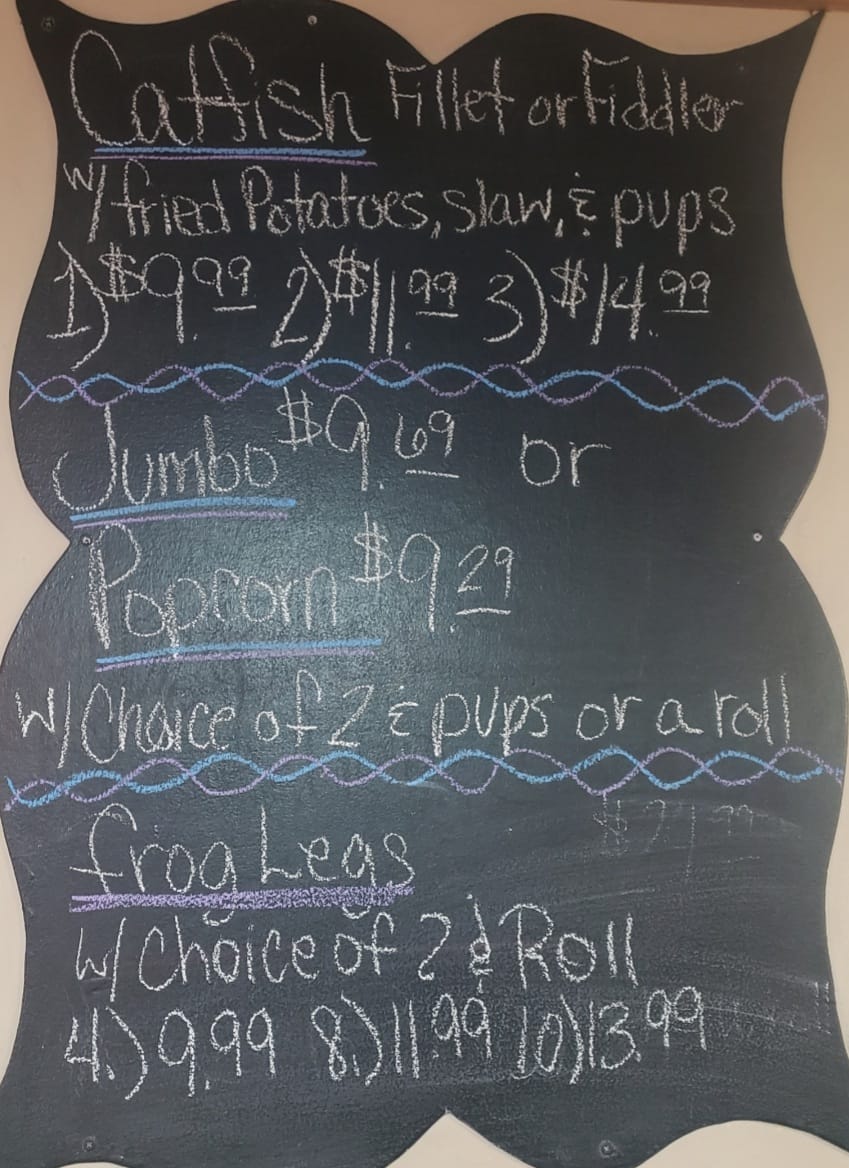 Catfish Fillet or Fiddler
w/ fried Potatoes, slaw, & pups
1) $9.99 2) $11.99 3) $14.99
Jumbo $9.69 or
Popcorn $9.29
W/ Choice of 2 & pups or a roll
frog Legs
w/ Choice of 2 & Roll
4.) 9.99 8.) 11.99 10) 13.99